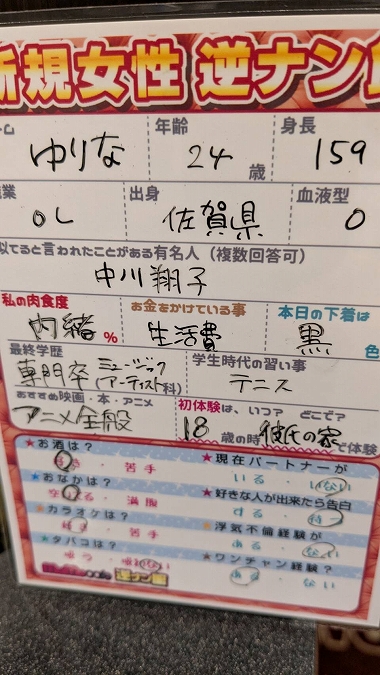 新規女性 逆ナン館
ーム 年齢 身長
ゆりな 24歳 159
業 出身 血液型
OL 佐賀県 O
似てると言われたことがある有名人（複数回答可）
中川翔子
私の肉食度 お金をかけている事 本日の下着は
内緒% 生活費 黒色
最終学歴 学生時代の習い事
専門卒（ミュージックアーティスト科） テニス
おすすめ映画・本・アニメ 初体験は、いつ? どこで?
アニメ全般 18歳の時 彼氏の家で体験
★お酒は? ★現在パートナーが
好き・苦手 いる・いない
★おなかは? ★好きな人が出来たら告白
空いてる・満腹 する・待つ
★カラオケは? ★浮気不倫経験が
好き・苦手 ある・ない
★タバコは? ★ワンチャン経験が?
吸う・吸わない ある・ない
逆ナン館